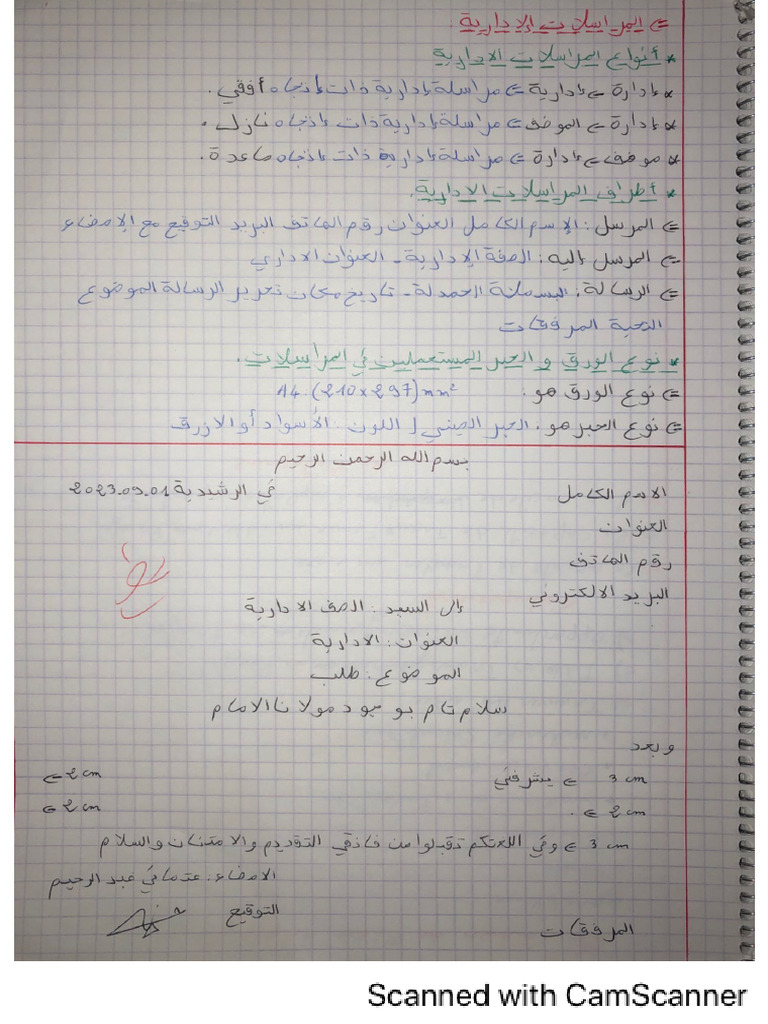 ⇐ المراسلات الإدارية:
* أنواع المراسلات الادارية
* إدارة ⇐ إدارية ⇐ مراسلة إدارية ذات إتجاه أفقي.
* إدارة ⇐ الموضف ⇐ مراسلة إدارية ذات إتجاه نازل.
* موضف ⇐ إدارة ⇐ مراسلة إدارية ذات إتجاه صاعدة.
* أطراف المراسلات الادارية.
⇐ المرسل: الإسم الكامل العنوان رقم الهاتف البريد التوقيع مع الإمضاء
⇐ المرسل إليه: الصفة الإدارية - العنوان الاداري
⇐ الرسالة: البسملة الحمدلة - تاريخ مكان تحرير الرسالة الموضوع
التحية المرفقات
* نوع الورق و الحبر المستعملين في المراسلات.
⇐ نوع الورق هو: A4.(210x297)mm²
⇐ نوع الحبر هو: الحبر الصيني [ اللون: الأسواد أو الازرق
بسم الله الرحمن الرحيم
الاسم الكامل
في الرشيدية 2023.09.01
العنوان
رقم الهاتف
البريد الالكتروني
إلى السيد: الصف الادارية
العنوان: الادارية
الموضوع: طلب
سلام تام بوجود مولانا الامام
وبعد
3 cm ⇐ يشرفني ⇐ 2 cm
2 cm ⇐ . ⇐ 2 cm
3 cm ⇐ وفي تقبلوا من فائقي التقديم والامتنان والسلام
الامضاء: عتماني عبد الرحيم
التوقيع
المرفقات
Scanned with CamScanner